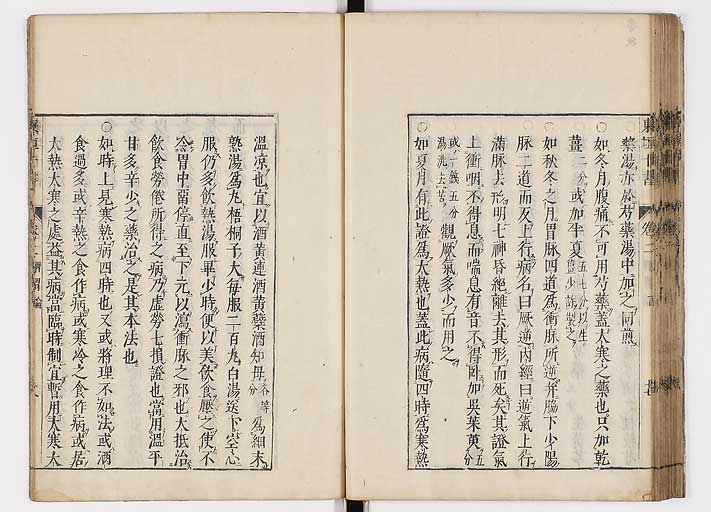 藥湯亦於芍藥湯中加之同煎
○如冬月腹痛不可用芍藥蓋大寒之藥也只加乾
薑二分或加半夏五七分以生薑少許製之
○如秋冬之月胃脉四道爲衝脉所逆并脇下少陽
脉二道而反上行病名曰厥逆內經曰逆氣上行
滿脉去形明七神昏絕離去其形而死矣其證氣
上衝咽不得息而喘息有音不得臥加吳茱萸五分
或一錢五分湯洗去苦觀厥氣多少而用之
○如夏月有此證爲大熱也蓋此病隨四時爲寒熱
溫凉也宜以酒黃連酒黃蘗酒知母各等分爲細末
熟湯爲丸梧桐子大每服二百丸白湯送下空心
服仍多飲熱湯服畢少時便以美飲食壓之使不
令胃中留停直至下元以瀉衝脉之邪也大抵治
飲食勞倦所得之病乃虛勞七損證也當用溫平
甘多辛少之藥治之是其本法也
○如時上見寒熱病四時也又或將理不如法或酒
食過多或辛熱之食作病或寒冷之食作病或居
大熱大寒之處益其病當臨時制宜暫用大寒大